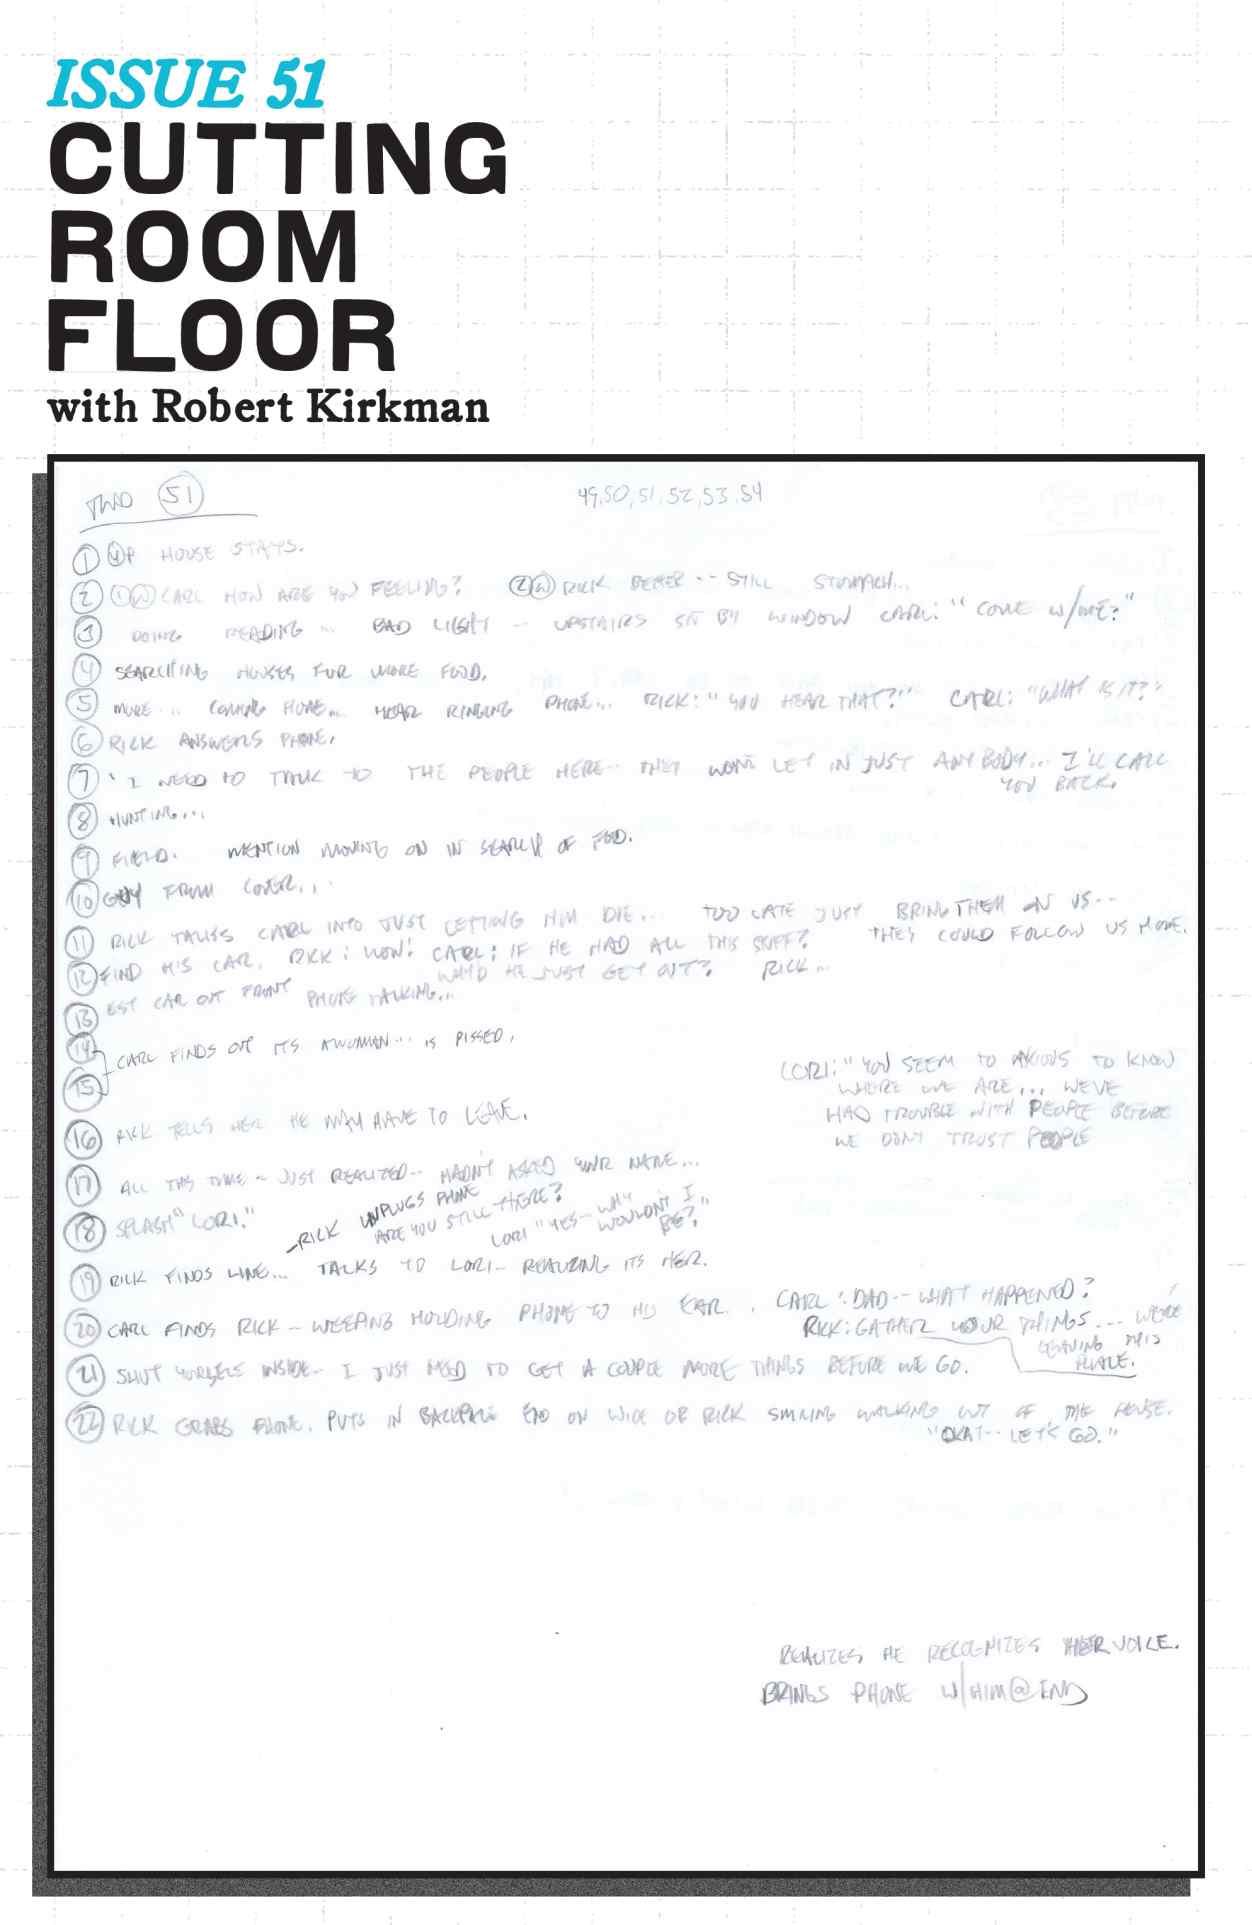 ISSUE 51
CUTTING
ROOM
FLOOR
with Robert Kirkman
TWD 51
49, 50, 51, 52, 53, 54
1 HOUSE STAYS.
2 1 W CARL HOW ARE YOU FEELING? 2 W RICK BETTER -- STILL STOMACH...
3 DOING READING ... BAD LIGHT -- UPSTAIRS SIT BY WINDOW CARL: "COME W/ME?"
4 SEARCHING HOUSES FOR MORE FOOD.
5 MORE ... COMING HOME... HEAR RINGING PHONE... RICK: "YOU HEAR THAT?" CARL: "WHAT IS IT?"
6 RICK ANSWERS PHONE.
7 "I NEED TO TALK TO THE PEOPLE HERE -- THEY WONT LET IN JUST ANYBODY... I'LL CALL
YOU BACK.
8 HUNTING...
9 FIELD. MENTION MOVING ON IN SEARCH OF FOOD.
10 GUY FROM COVER...
11 RICK TALKS CARL INTO JUST LETTING HIM DIE... TOO LATE JUST BRING THEM ON US --
THEY COULD FOLLOW US HOME.
12 FIND HIS CAR. RICK: WOW! CARL: IF HE HAD ALL THIS STUFF?
WHY'D HE JUST GET OUT? RICK...
13 EST CAR OUT FRONT PHONE TALKING...
14 CARL FINDS OUT ITS A WOMAN... IS PISSED.
15
LORI: "YOU SEEM TO ANXIOUS TO KNOW
WHERE WE ARE... WE'VE
HAD TROUBLE WITH PEOPLE BEFORE
WE DON'T TRUST PEOPLE
16 RICK TELLS HER HE MAY HAVE TO LEAVE.
17 ALL THIS TIME -- JUST REALIZED -- HADN'T ASKED YOUR NAME...
18 SPLASH "LORI."
-RICK UNPLUGS PHONE
ARE YOU STILL THERE?
LORI "YES -- WHY
WOULDN'T I
BE?"
19 RICK FINDS LINE... TALKS TO LORI -- REALIZING ITS HER.
20 CARL FINDS RICK -- WEEPING HOLDING PHONE TO HIS EAR. CARL: DAD -- WHAT HAPPENED?
RICK: GATHER YOUR THINGS... WE'RE
LEAVING THIS
PLACE.
21 SHUT INSIDE -- I JUST NEED TO GET A COUPLE MORE THINGS BEFORE WE GO.
22 RICK GRABS PHONE. PUTS IN BACKPACK END ON WIDE OF RICK SMILING WALKING OUT OF THE HOUSE.
"OKAY -- LET'S GO."
REALIZES HE RECOGNIZES HER VOICE.
BRINGS PHONE W/HIM @ END